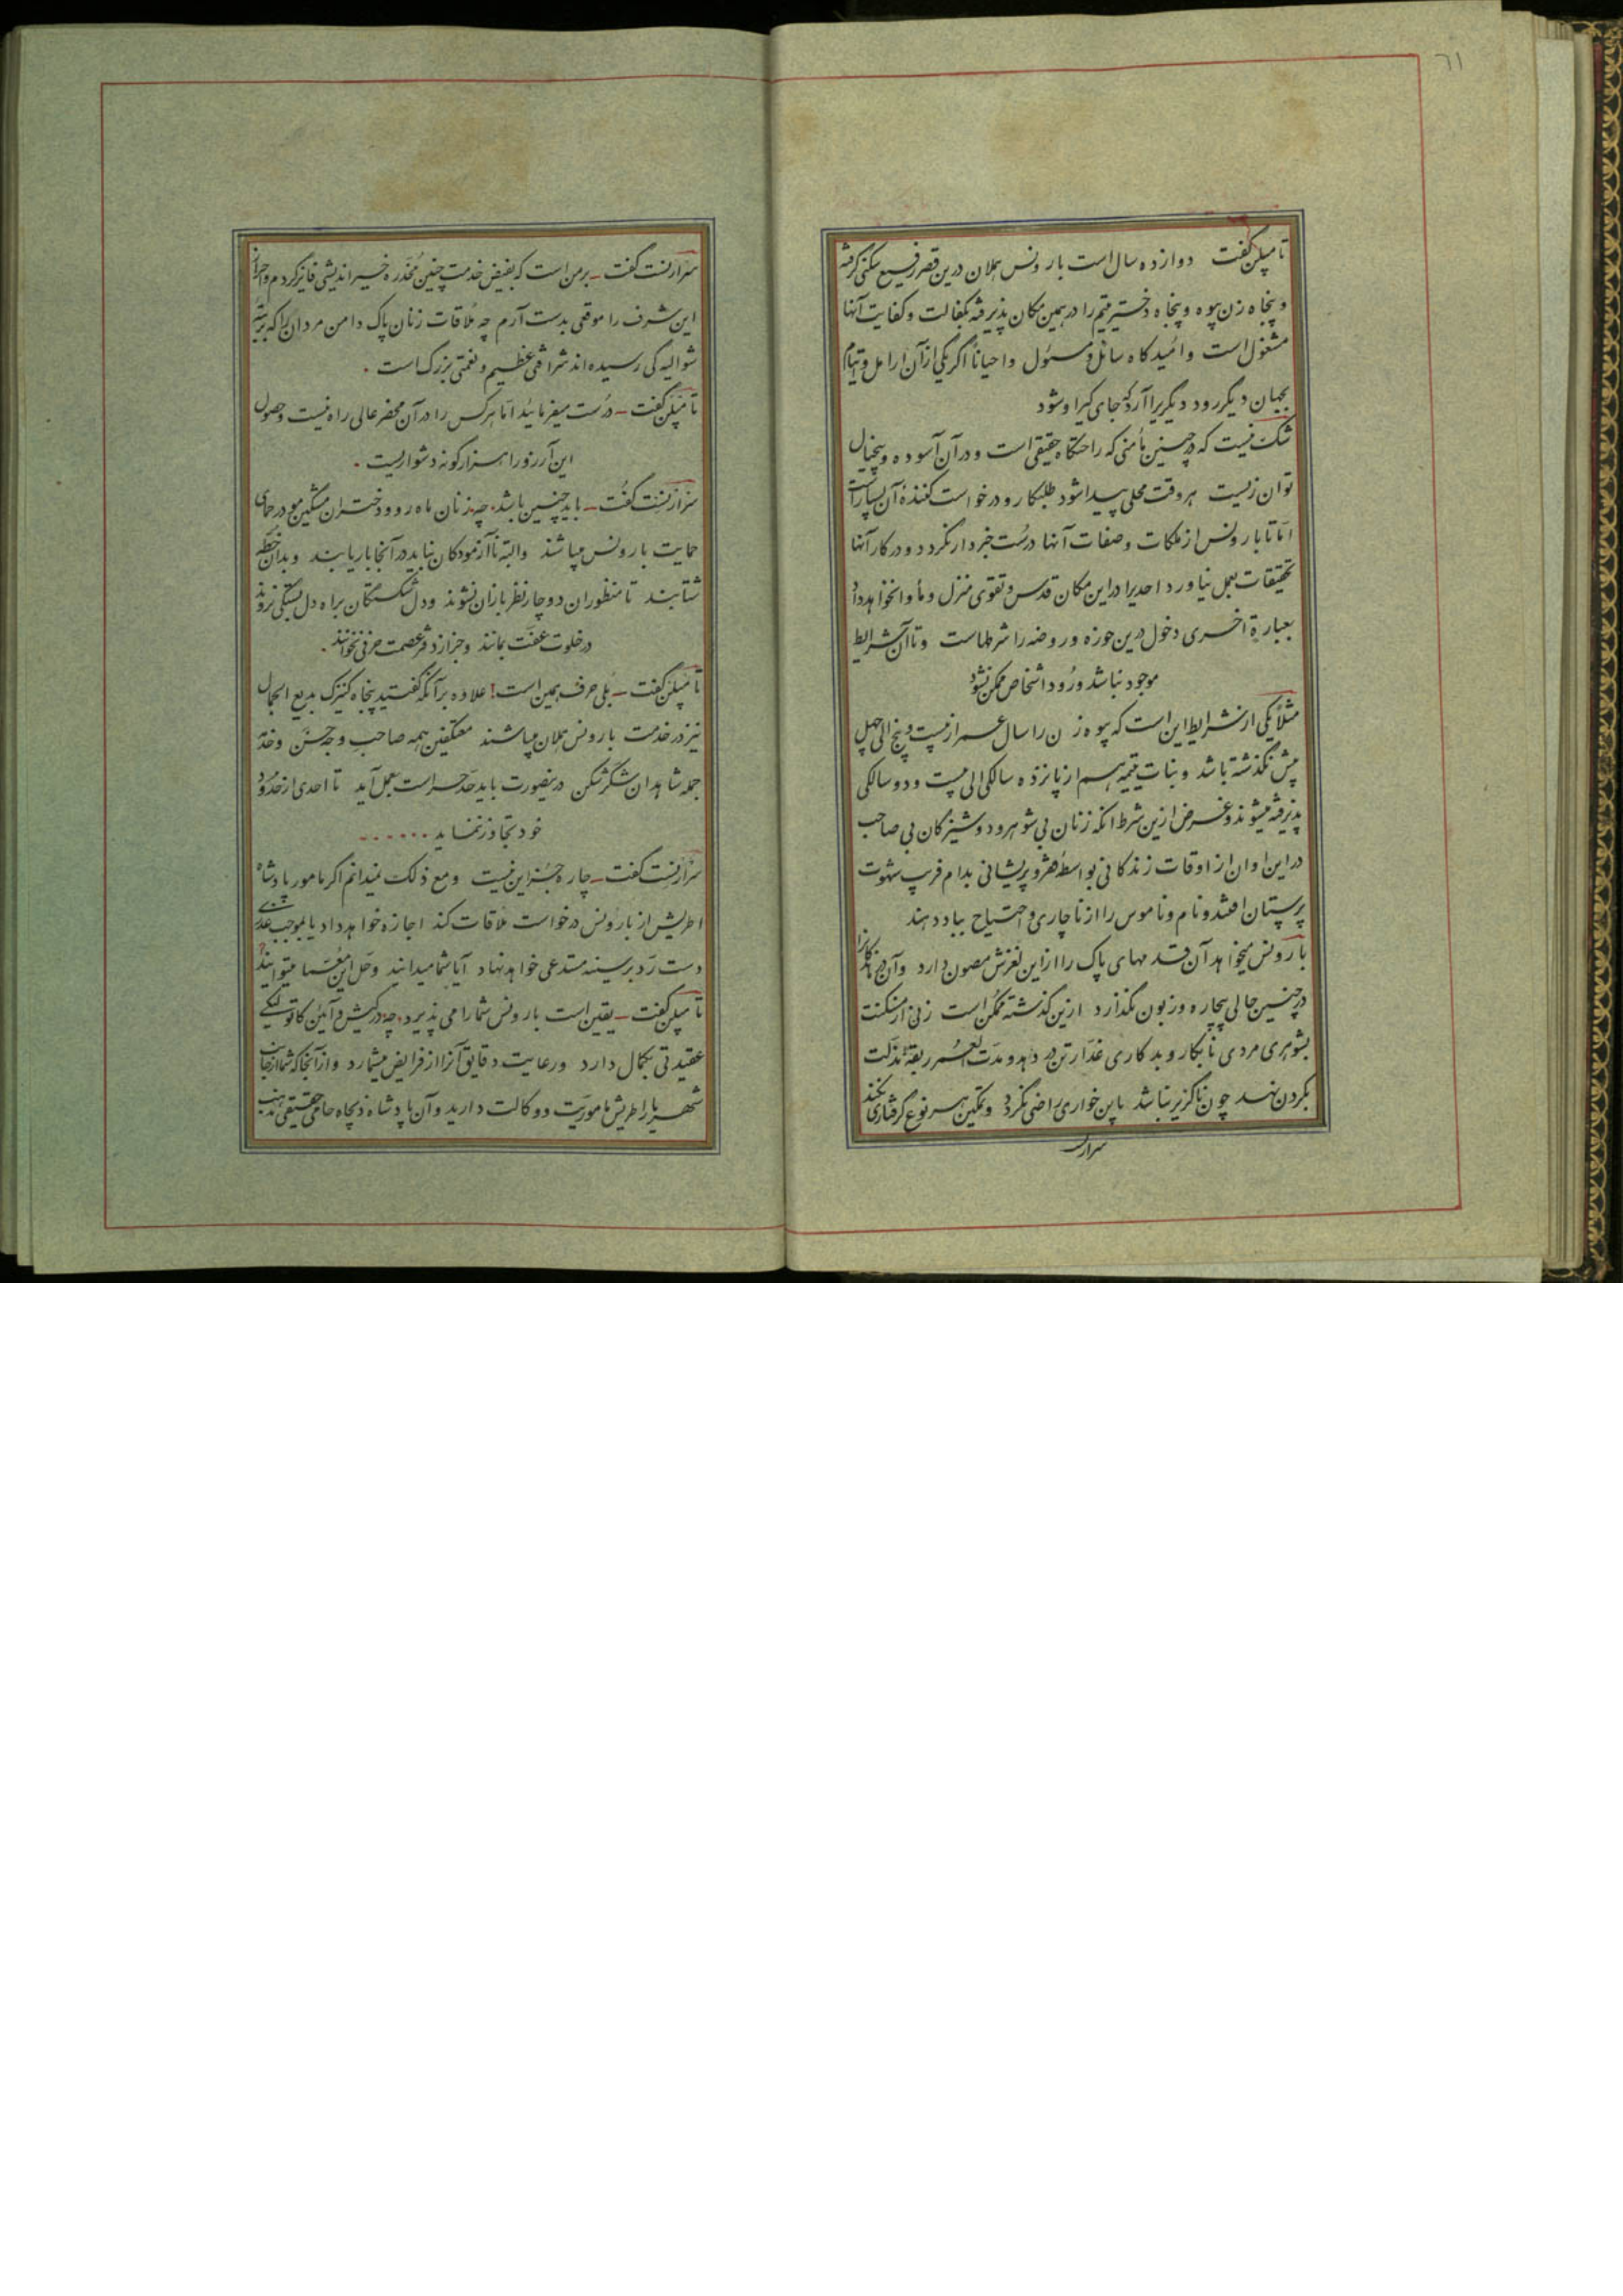 ٦١
تامپلن گفت دوازده سال است بارونس هملان درین قصر رفیع سکنی گرفته
و پنجاه زن بیوه و پنجاه دختر یتیم را در همین مکان پذیرفته بکفالت و کفایت آنها
مشغول است و امیدگاه سائل و مسئول و احیاناً اگر یکی از آن ارامل و ایتام
بجهان دیگر رود دیگریرا آرد که جای گیر او شود
شک نیست که در چنین مأمنی که راحتگاه حقیقی است و در آن آسوده و بیخیال
توان زیست هر وقت محلی پیدا شود طلبکار و درخواست کنندهٔ آن بسیار است
اما تا بارونس از ملکات و صفات آنها درست خبردار نگردد و در کار آنها
تحقیقات بعمل نیاورد احدیرا در این مکان قدس و تقوی منزل و مأوا نخواهد داد
بعبارة اخری دخول درین حوزه و روضه را شرطهاست و تا آن شرایط
موجود نباشد ورود اشخاص ممکن نشود
مثلاً یکی از شرایط این است که بیوه زن را سال عمر از بیست و پنج الی چهل
بیش نگذشته باشد و بنات یتیمه هم از پانزده سالگی الی بیست و دو سالگی
پذیرفته میشوند و غرض ازین شرط انکه زنان بی شوهر و دوشیزگان بی صاحب
در این اوان از اوقات زندگانی بواسطهٔ فقر و پریشانی بدام فریب شهوت
پرستان افتند و نام و ناموس را از ناچاری و احتیاج بباد دهند
بارونس میخواهد آن قدمهای پاک را از این لغزش مصون دارد و آن
در چنین حالی بیچاره و زبون نگذارد ازین گذشته ممکن است زنی از مسکنت
بشوهری مردی نابکار و بدکاری غدار تن در دهد و مدت العمر ربقهٔ مذلت
بگردن نهد چون ناگزیر نباشد باین خواری راضی نگردد و تمکین هر نوع گرفتاری نکند
سرارنست
سرارنست گفت ـ برمن است که بفیض خدمت چنین مخدرهٔ خیراندیشی فایز گردم و احراز
این شرف را موقعی بدست آرم چه ملاقات زنان پاک دامن مردانی را که برتبهٔ
شوالیه گی رسیده اند شرافتی عظیم و نعمتی بزرگ است .
تامپلن گفت ـ درست میفرمایید اما هر کس را در آن محضر عالی راه نیست و حصول
این آرزو را هزار گونه دشواریست .
سرارنست گفت ـ باید چنین باشد. چه زنان ماه رو و دختران مشکین مو در حمای
حمایت بارونس میباشند والبته ناآزمودگان نباید در آنجا بار یابند و بدان خطه
شتابند تا منظوران دوچار نظربازان نشوند و دل شکستگان براه دل بستگی نروند
در خلوت عفت بمانند و جز از دفتر عصمت حرفی نخوانند .
تامپلن گفت ـ بلی حرف همین است! علاوه بر آنکه گفتید پنجاه کنیزک بدیع الجمال
نیز در خدمت بارونس هملان میباشند معتکفین همه صاحب وجه حسن و خدمه
جمله شاهدان شکرشکن درینصورت باید حد حراست بعمل آید تا احدی از حدود
خود تجاوز ننماید ......
سرارنست گفت ـ چاره جز این نیست و مع ذلک نمیدانم اگر مامور پادشاه
اطریش از بارونس درخواست ملاقات کند اجازه خواهد داد یا بموجب عذری
دست رد بر سینه مستدعی خواهد نهاد آیا شما میدانید و حل این معما میتوانید؟
تامپلن گفت ـ یقین است بارونس شما را می پذیرد. چه در کیش و آئین کاتولیکی
عقیدتی بکمال دارد و رعایت دقایق آنرا از فرایض میشمارد و از آنجا که شما از جانب
شهریار اطریش ماموریت و وکالت دارید و آن پادشاه ذیجاه حامی حقیقی مذهب